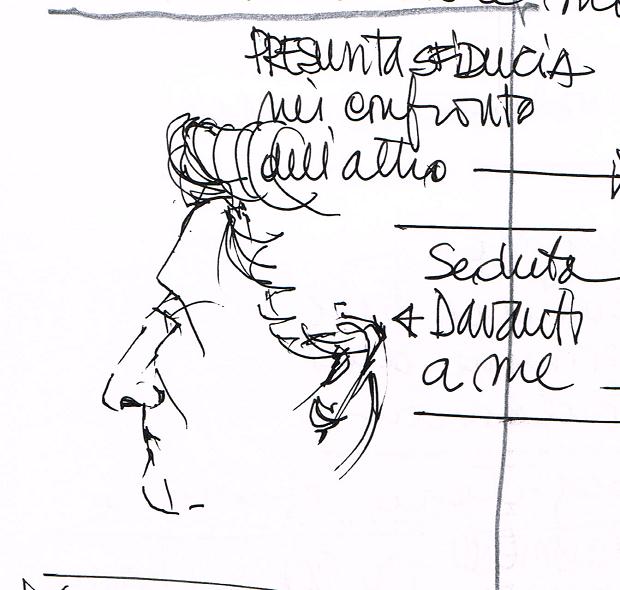 PRESUNTA SFIDUCIA
nei confronto
dell'altro
Seduta
Davanti
a me